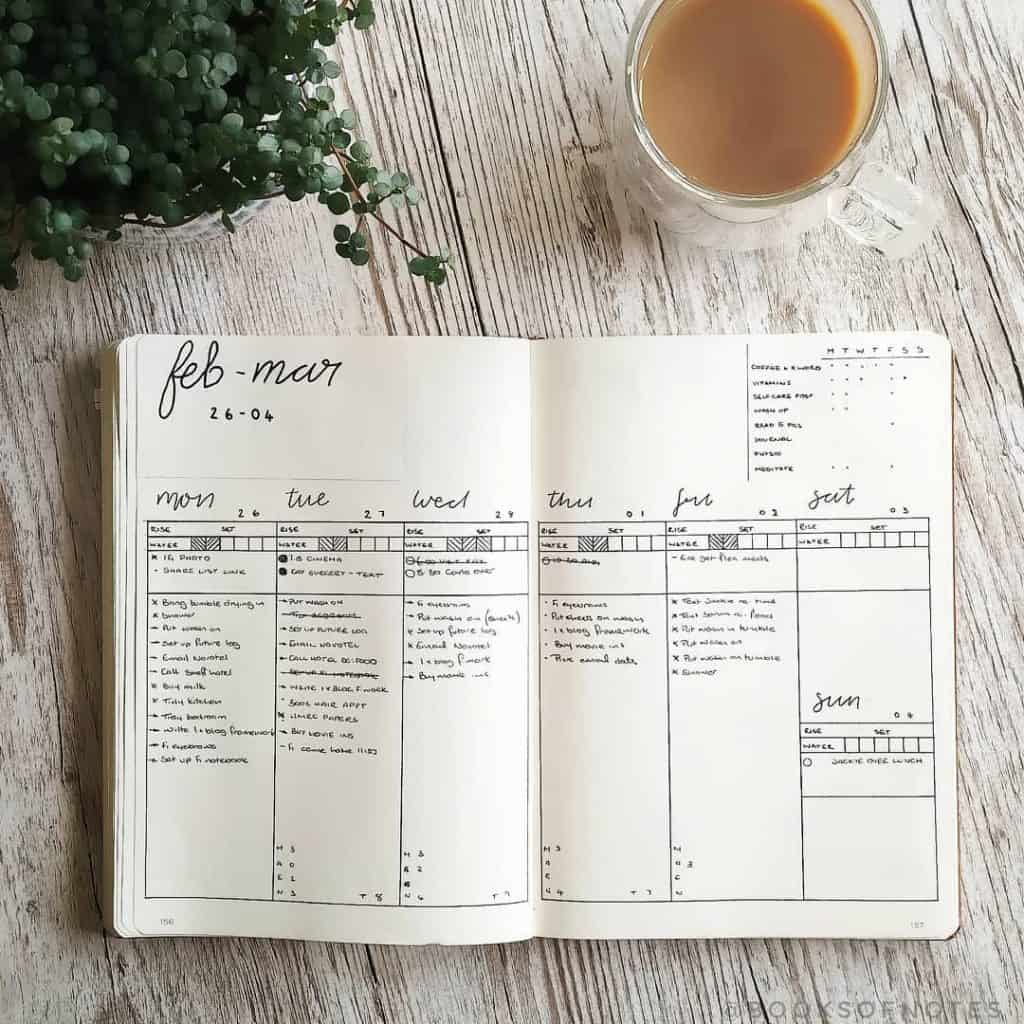 feb-mar
26-04
M T W T F S S
COFFEE & X WORD
VITAMINS
SELF-CARE
WASH UP
READ
JOURNAL
PHYSIO
MEDITATE
mon
26
RISE SET
WATER
IG PHOTO
SHARE LIST LINK
Bring tumble drying in
Shower
Put wash on
Set up future log
Email Novotel
Call hotel
Buy milk
Tidy kitchen
Tidy bedroom
Write 1 x blog framework
Fi eyebrows
Set up Fi notebook
tue
27
RISE SET
WATER
CINEMA
SURGERY - TEXT
PUT WASH ON
SET UP FUTURE LOG
EMAIL NOVOTEL
CALL HOTEL
SET UP FI NOTEBOOK
WRITE 1 X BLOG F.WORK
HAIR APPT
PAPERS
BUY MOVIE INS
FI come home
M 3
A 0
E 2
N 3
T 8
wed
28
RISE SET
WATER
Fi eyebrows
Put wash on
Set up future log
Email Novotel
1 x blog f.work
Buy movie ins
M 3
2
N 6
T 9
thu
01
RISE SET
WATER
Fi eyebrows
Put sheets on wash
1 x blog framework
Buy movie ins
M 3
A
E
N 4
T 7
fri
02
RISE SET
WATER
get flea meds
Text Jackie re time
Text re. food
Put wash in tumble
Put wash on
Put wash on tumble
Shower
M
A 3
E
N
sat
03
RISE SET
WATER
sun
04
RISE SET
WATER
JACKIE OVER LUNCH
156
157
©BOOKSOFNOTES